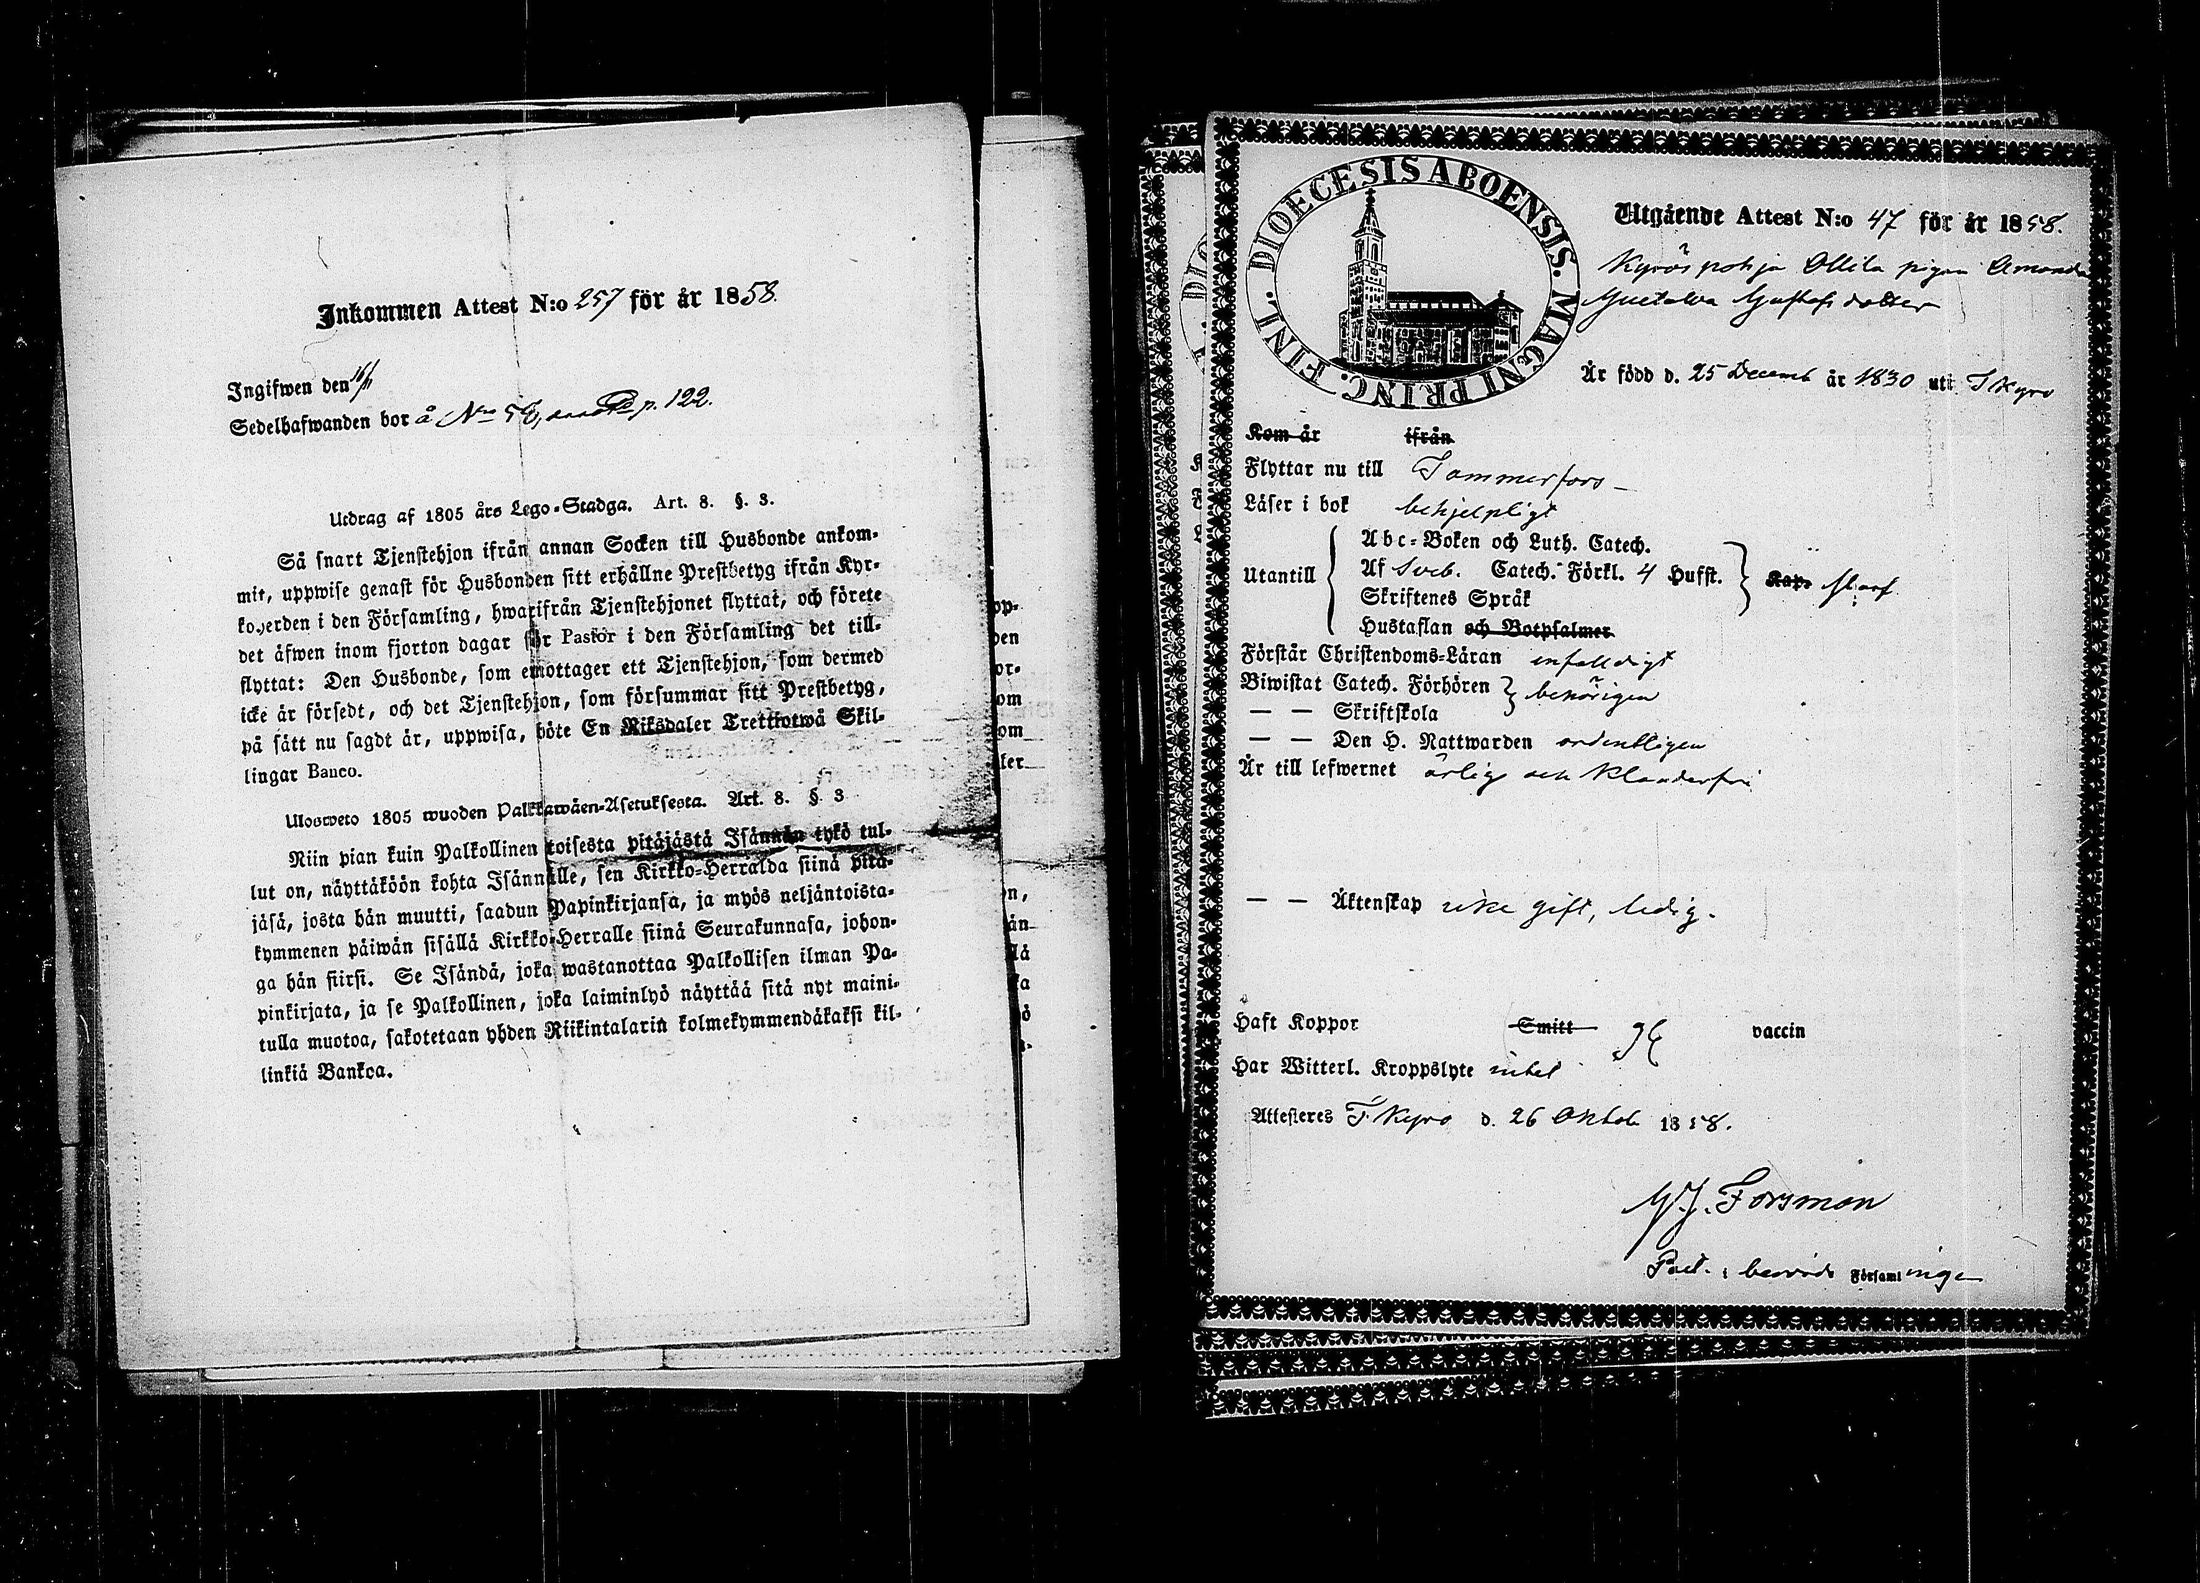 Inkommen Attest N:o 257 för år 1858.
Ingifwen den 16/11
Sedelhafwanden bor å N:o 58, p. 122.
Utdrag af 1805 års Lego-Stadga. Art. 8. §. 3.
Så snart Tjenstehjon ifrån annan Socken till Husbonde ankom-
mit, uppwise genast för Husbonden sitt erhållne Prestbetyg ifrån Kyr-
koherden i den Församling, hwarifrån Tjenstehjonet flyttat, och förete
det äfwen inom fjorton dagar för Pastor i den Församling det till-
flyttat: Den Husbonde, som emottager ett Tjenstehjon, som dermed
icke är försedt, och det Tjenstehjon, som försummar sitt Prestbetyg,
på sätt nu sagdt är, uppwisa, böte En Riksdaler Trettiotwå Skil-
lingar Banco.
Ulosweto 1805 wuoden Palkkawäen-Asetuksesta. Art. 8. § 3
Niin pian kuin Palkollinen toisesta pitäjästä Isännän tykö tul-
lut on, näyttäköön kohta Isännälle, sen Kirkko-Herralda siinä pitä-
jäsä, josta hän muutti, saadun Papinkirjansa, ja myös neljäntoista-
kymmenen päiwän sisällä Kirkko-Herralle siinä Seurakunnasa, johon-
ga hän siirsi. Se Isändä, joka wastanottaa Palkollisen ilman Pa-
pinkirjata, ja se Palkollinen, joka laiminlyö näyttää sitä nyt maini-
tulla muotoa, sakotetaan yhden Riikintalarin kolmekymmendäkaksi kil-
linkiä Bankoa.
DIOECESIS ABOENSIS. MAGNI PRINC. FINL.
Utgående Attest N:o 47 för år 1858.
Kyröspohja Ollila pigan Amanda
Gustava Gustafsdotter
Är född d. 25 Decemb år 1830 uti T Kyro
Kom år ifrån
Flyttar nu till Tammerfors
Läser i bok behjelpligt
Utantill
Abc-Boken och Luth. Catech.
Af Sveb. Catech. Förkl. 4 Hufst.
Skriftenes Språk
Hustaflan och Botpsalmer
Kap.
Förstår Christendoms-Läran enfaldigt
Biwistat Catech. Förhören behörigen
— — Skriftskola
— — Den H. Nattwarden ordentligen
Är till lefwernet ärlig och klanderfri
— — Äktenskap icke gift, ledig.
Haft Koppor Smitt vaccin
Har Witterl. Kroppslyte intet
Attesteres T. Kyro d. 26 Oktob 1858.
G. J. Forsman
Past. i berörde Församlingen